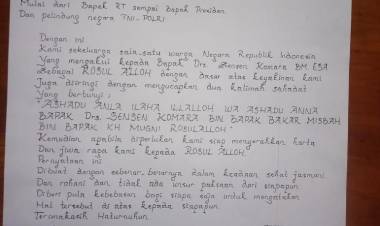 Mulai dari Bapak RT sampai Bapak Presiden
Dan pelindung negara TNI-POLRI
Dengan ini
Kami sekeluarga salah satu warga Negara Republik Indonesia
Yang mengakui kepada Bapak Drs Sensen Komara BM ESA
Sebagai ROSUL ALLOH dengan dasar atas keyakinan kami
Juga diiringi dengan mengucapkan dua kalimah sahadat
Yang berbunyi :
"ASHADU ANLA ILAHA ILLALLOH WA ASHADU ANNA
BAPAK Drs. SENSEN KOMARA BIN BAPAK BAKAR MISBAH
BIN BAPAK KH MUGNI ROSULALLOH"
Kemudian apabila diperlukan kami siap menyerahkan harta
Dan jiwa raga kami kepada ROSUL ALLOH
Pernyataan ini
Dibuat dengan sebenar-benarnya dalam keadaan sehat jasmani
Dan rohani dan tidak ada unsur paksaan dari siapapun
Diberi pula kebebasan bagi siapa saja untuk mengatakan
Hal tersebut di atas kepada siapapun
Terimakasih Haturnuhun